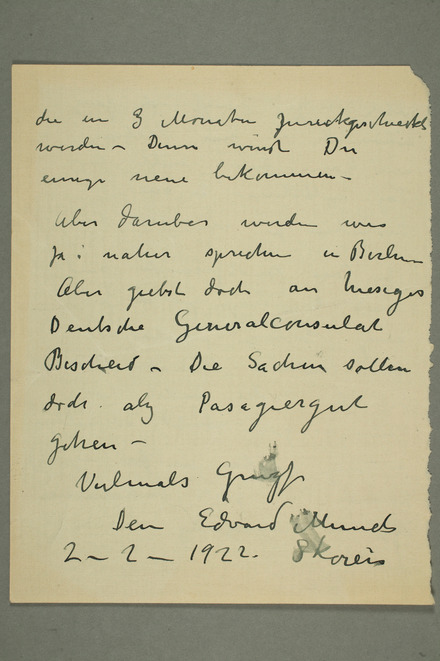 die in 3 Monaten zurückgeschickt
werden – Dann wirst Du
einige neue bekommen –
Aber darüber werden wir
ja i naher sprechen in Berlin
Also giebst doch an hiesiges
Deutsche Generalconsulat
Bescheid – Die Sachen sollen
doch als Pasagiergut
gehen –
Vielmals
Dein Edvard Munch
2 – 2 – 1922. Skøien